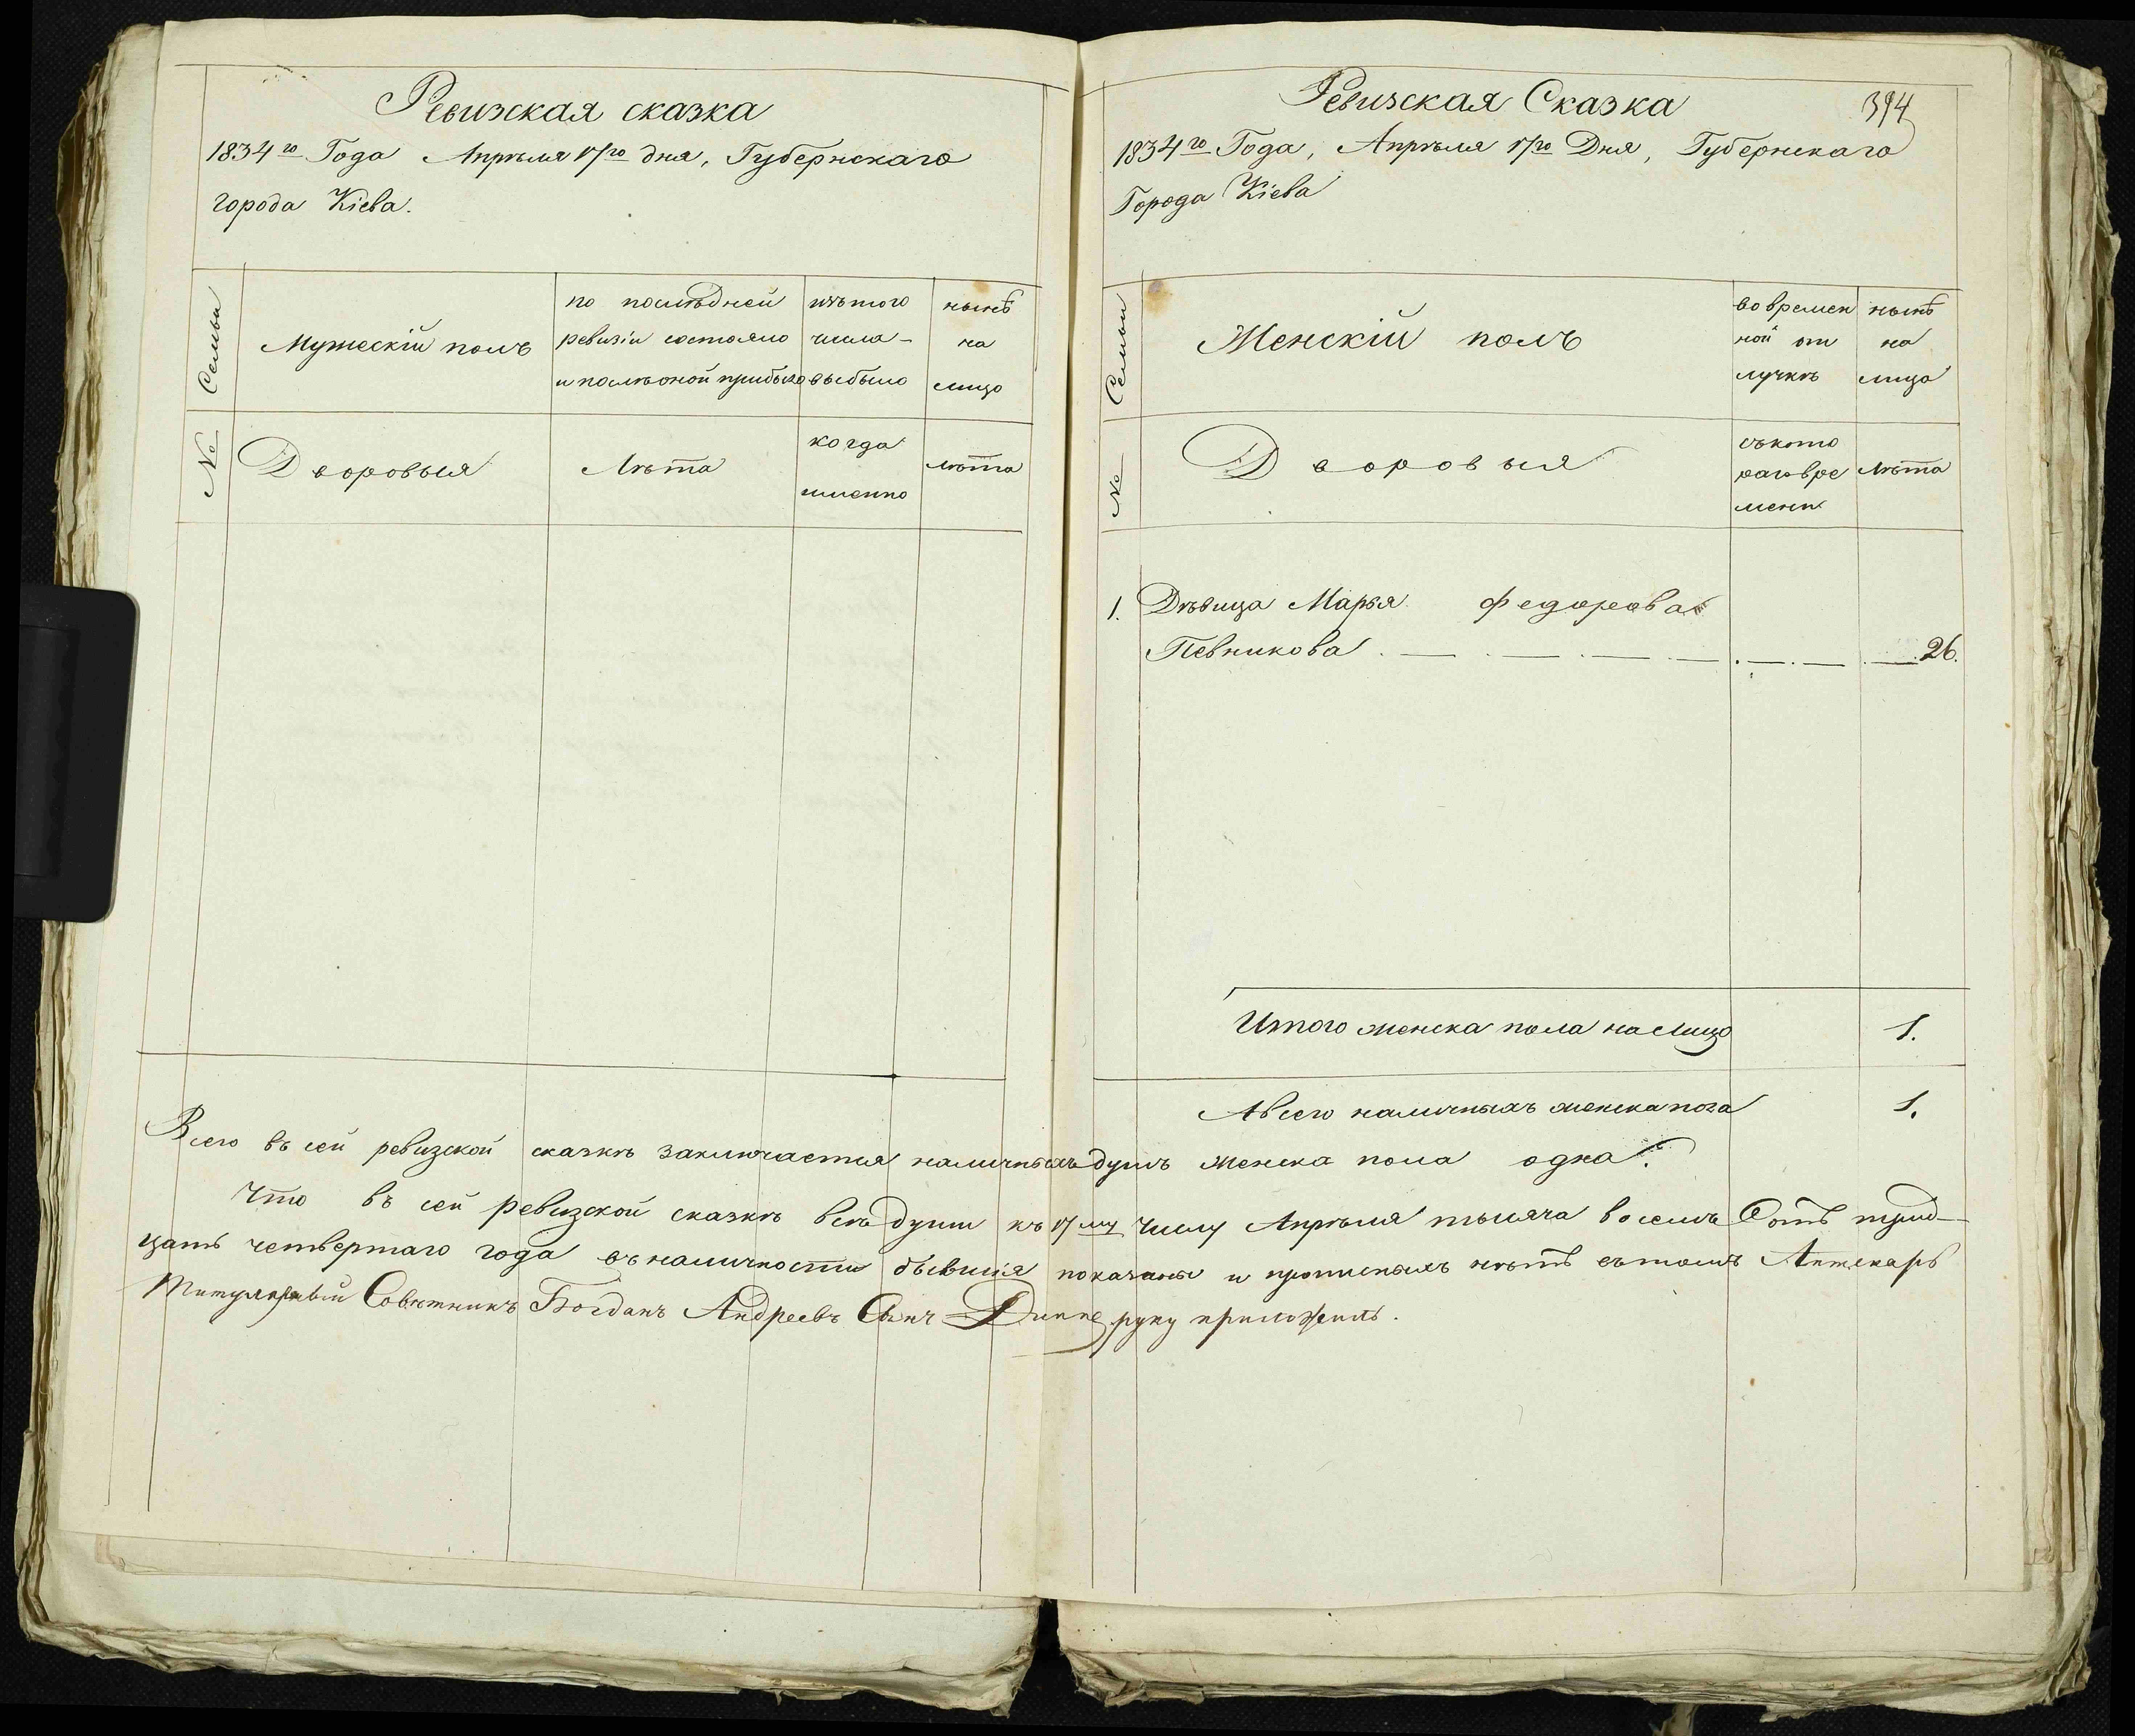 Ревизская сказка
1834го Года Апрѣля 17го дня, Губернскаго
города Кіева.
Семьи
Мужескій полъ
по послѣдней
ревизіи состояло
и послѣоной прибыло
изъ того
числа
выбыло
нынѣ
на
лицо
№
Дворовыя
Лѣта
когда
именно
лѣта
Ревизская Сказка
394
1834го Года, Апрѣля 17го Дня, Губернскаго
Города Кіева
Семьи
Женскій полъ
во времен
ной от
лучкѣ
нынѣ
на
лицо
№
Дворовыя
съ кото
раго вре
мени
Лѣта
1. Дѣвица Марья Федорова
Певникова 26.
Итого женска пола на Лицо 1.
А всего наличныхъ женска пола 1.
Всего въ сей ревизской сказкѣ заключается наличныхъ душъ женска пола одна.
Что въ сей ревизской сказкѣ всѣ души къ 17му числу Апрѣля тысяча восемь Сотъ трид-
цать четвертаго года въ наличности бывшія показаны и прописныхъ нѣтъ въ томъ Аптекарь
Титулярный Совѣтникъ Богданъ Андреевъ Сынъ руку приложилъ.